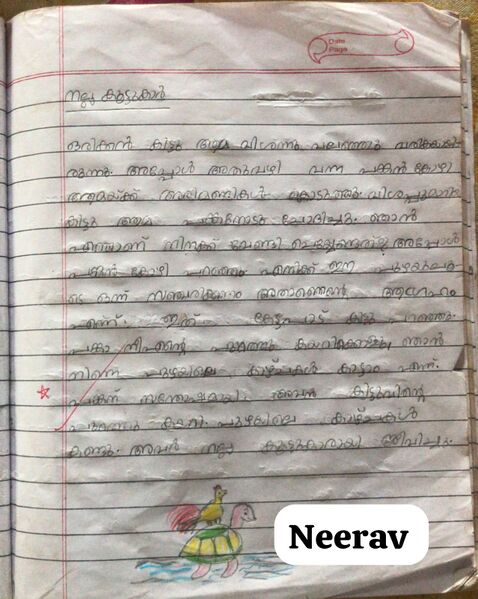 Date
Page
നല്ല കൂട്ടുകാർ
ഒരിക്കൽ കിട്ടു ആമ വിശന്നു വലഞ്ഞു വരികയാ
രുന്നു. അപ്പോൾ അതുവഴി വന്ന പങ്കൻ കോഴി
ആമയ്ക്ക് അരിമണികൾ കൊടുത്തു. വിശപ്പുമാറിയ
കിട്ടു ആമ പങ്കനോടു ചോദിച്ചു. ഞാൻ
എന്താണ് നിനക്ക് വേണ്ടി ചെയ്യേണ്ടത്? അപ്പോൾ
പങ്കൻ കോഴി പറഞ്ഞു എനിക്ക് ഈ പുഴയുടെ
ഒന്ന് സഞ്ചരിക്കണം അതാണെന്റെ ആഗ്രഹം
എന്ന്. ഇത് കേട്ടപാട് കിട്ടു പറഞ്ഞു.
പങ്കാ നീഎന്റെ പുറത്തു കയറിക്കൊള്ളൂ ഞാൻ
നിന്നെ പുഴയിലെ കാഴ്ചകൾ കാട്ടാം എന്ന്.
പങ്കന് സന്തോഷമായി. അവൻ കിട്ടുവിന്റെ
പുറത്തു കയറി. പുഴയിലെ കാഴ്ചകൾ
കണ്ടു. അവർ നല്ല കൂട്ടുകാരായി ജീവിച്ചു.
Neerav